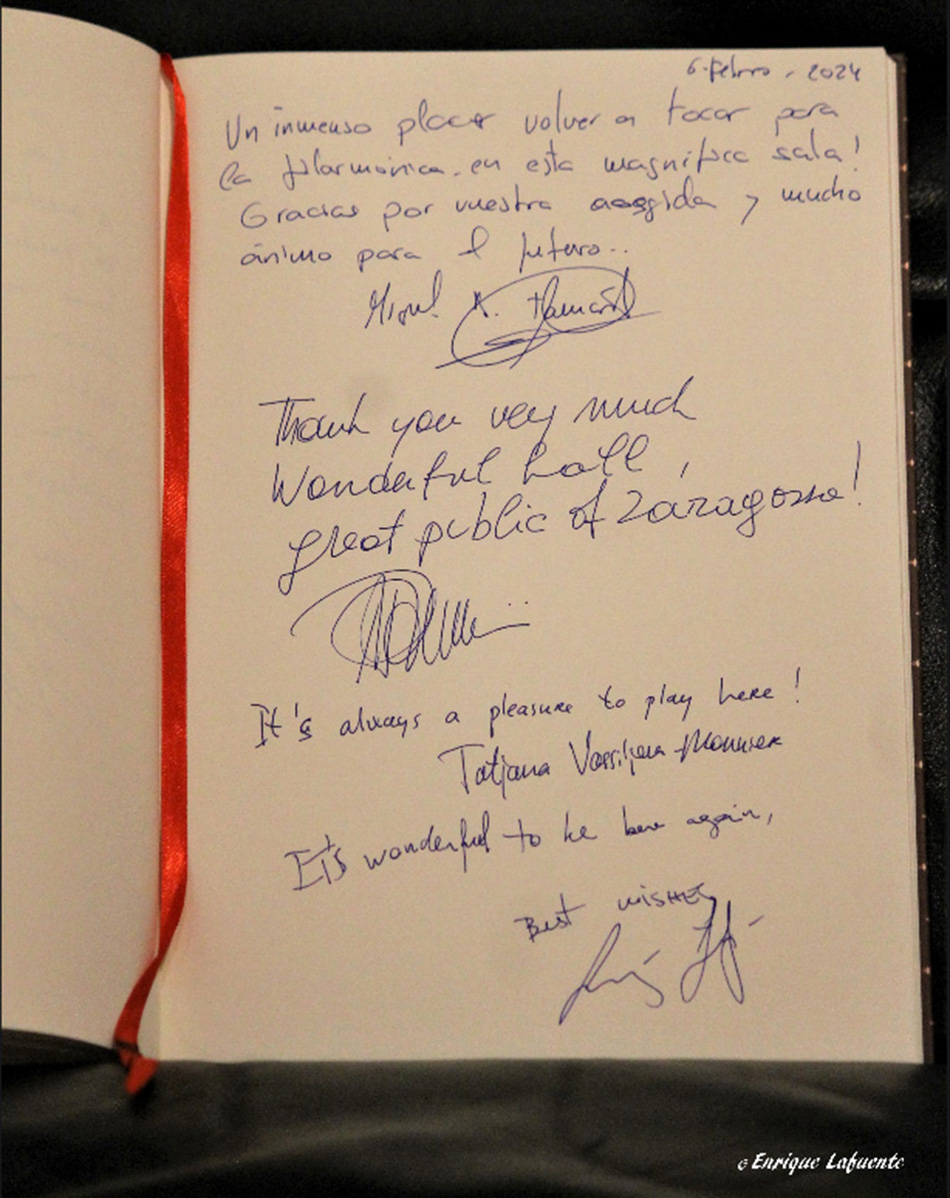 6. Febrero - 2024
Un inmenso placer volver a tocar para
la filarmónica en esta magnífica sala!
Gracias por vuestra acogida y mucho
ánimo para el futuro..
Miguel A.
Thank you very much
Wonderful hall,
great public of Zaragossa!
It's always a pleasure to play here!
Tatjana Vassiljeva-Monnier
It's wonderful to be here again,
Best wishes
© Enrique Lafuente